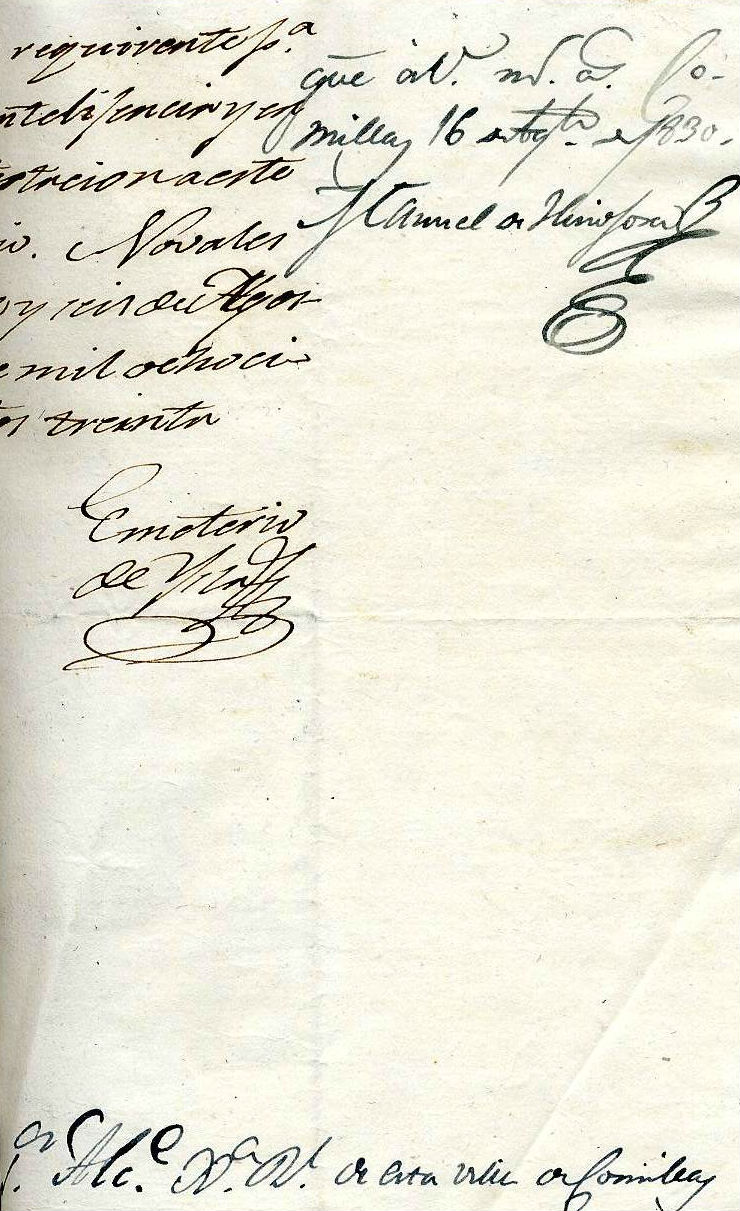 requirente p.ª
ntelijencia y en
stacion a este
io. Novales
y seis de Agos-
e mil ochocien
tos treinta
Emeterio
de
que à V. m.s a.s Co-
millas 16 de 1830.
Manuel de Hinojosa
S.or Alc.e de esta villa de Comillas